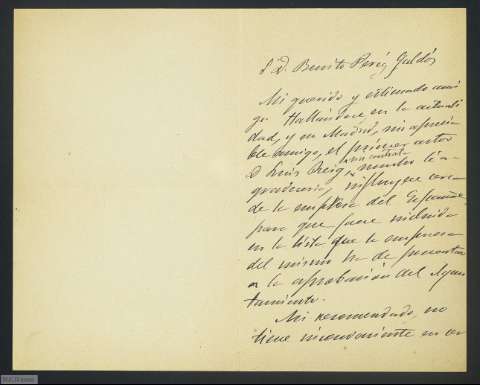 S. D. Benito Peréz Galdós
Mi querido y estimado ami
go. Hallándose en la actuali
dad, y en Madrid, mi aprecia
ble amigo, el primer actor
D. Luis Reig sin contrata
agradeceria, influyera cerca
de la empresa del Español
para que fuese incluido
en la lista que la empresa
del mismo ha de presentar
a la aprobación del Ayun
tamiento.
Mi recomendado, no
tiene inconveniente en